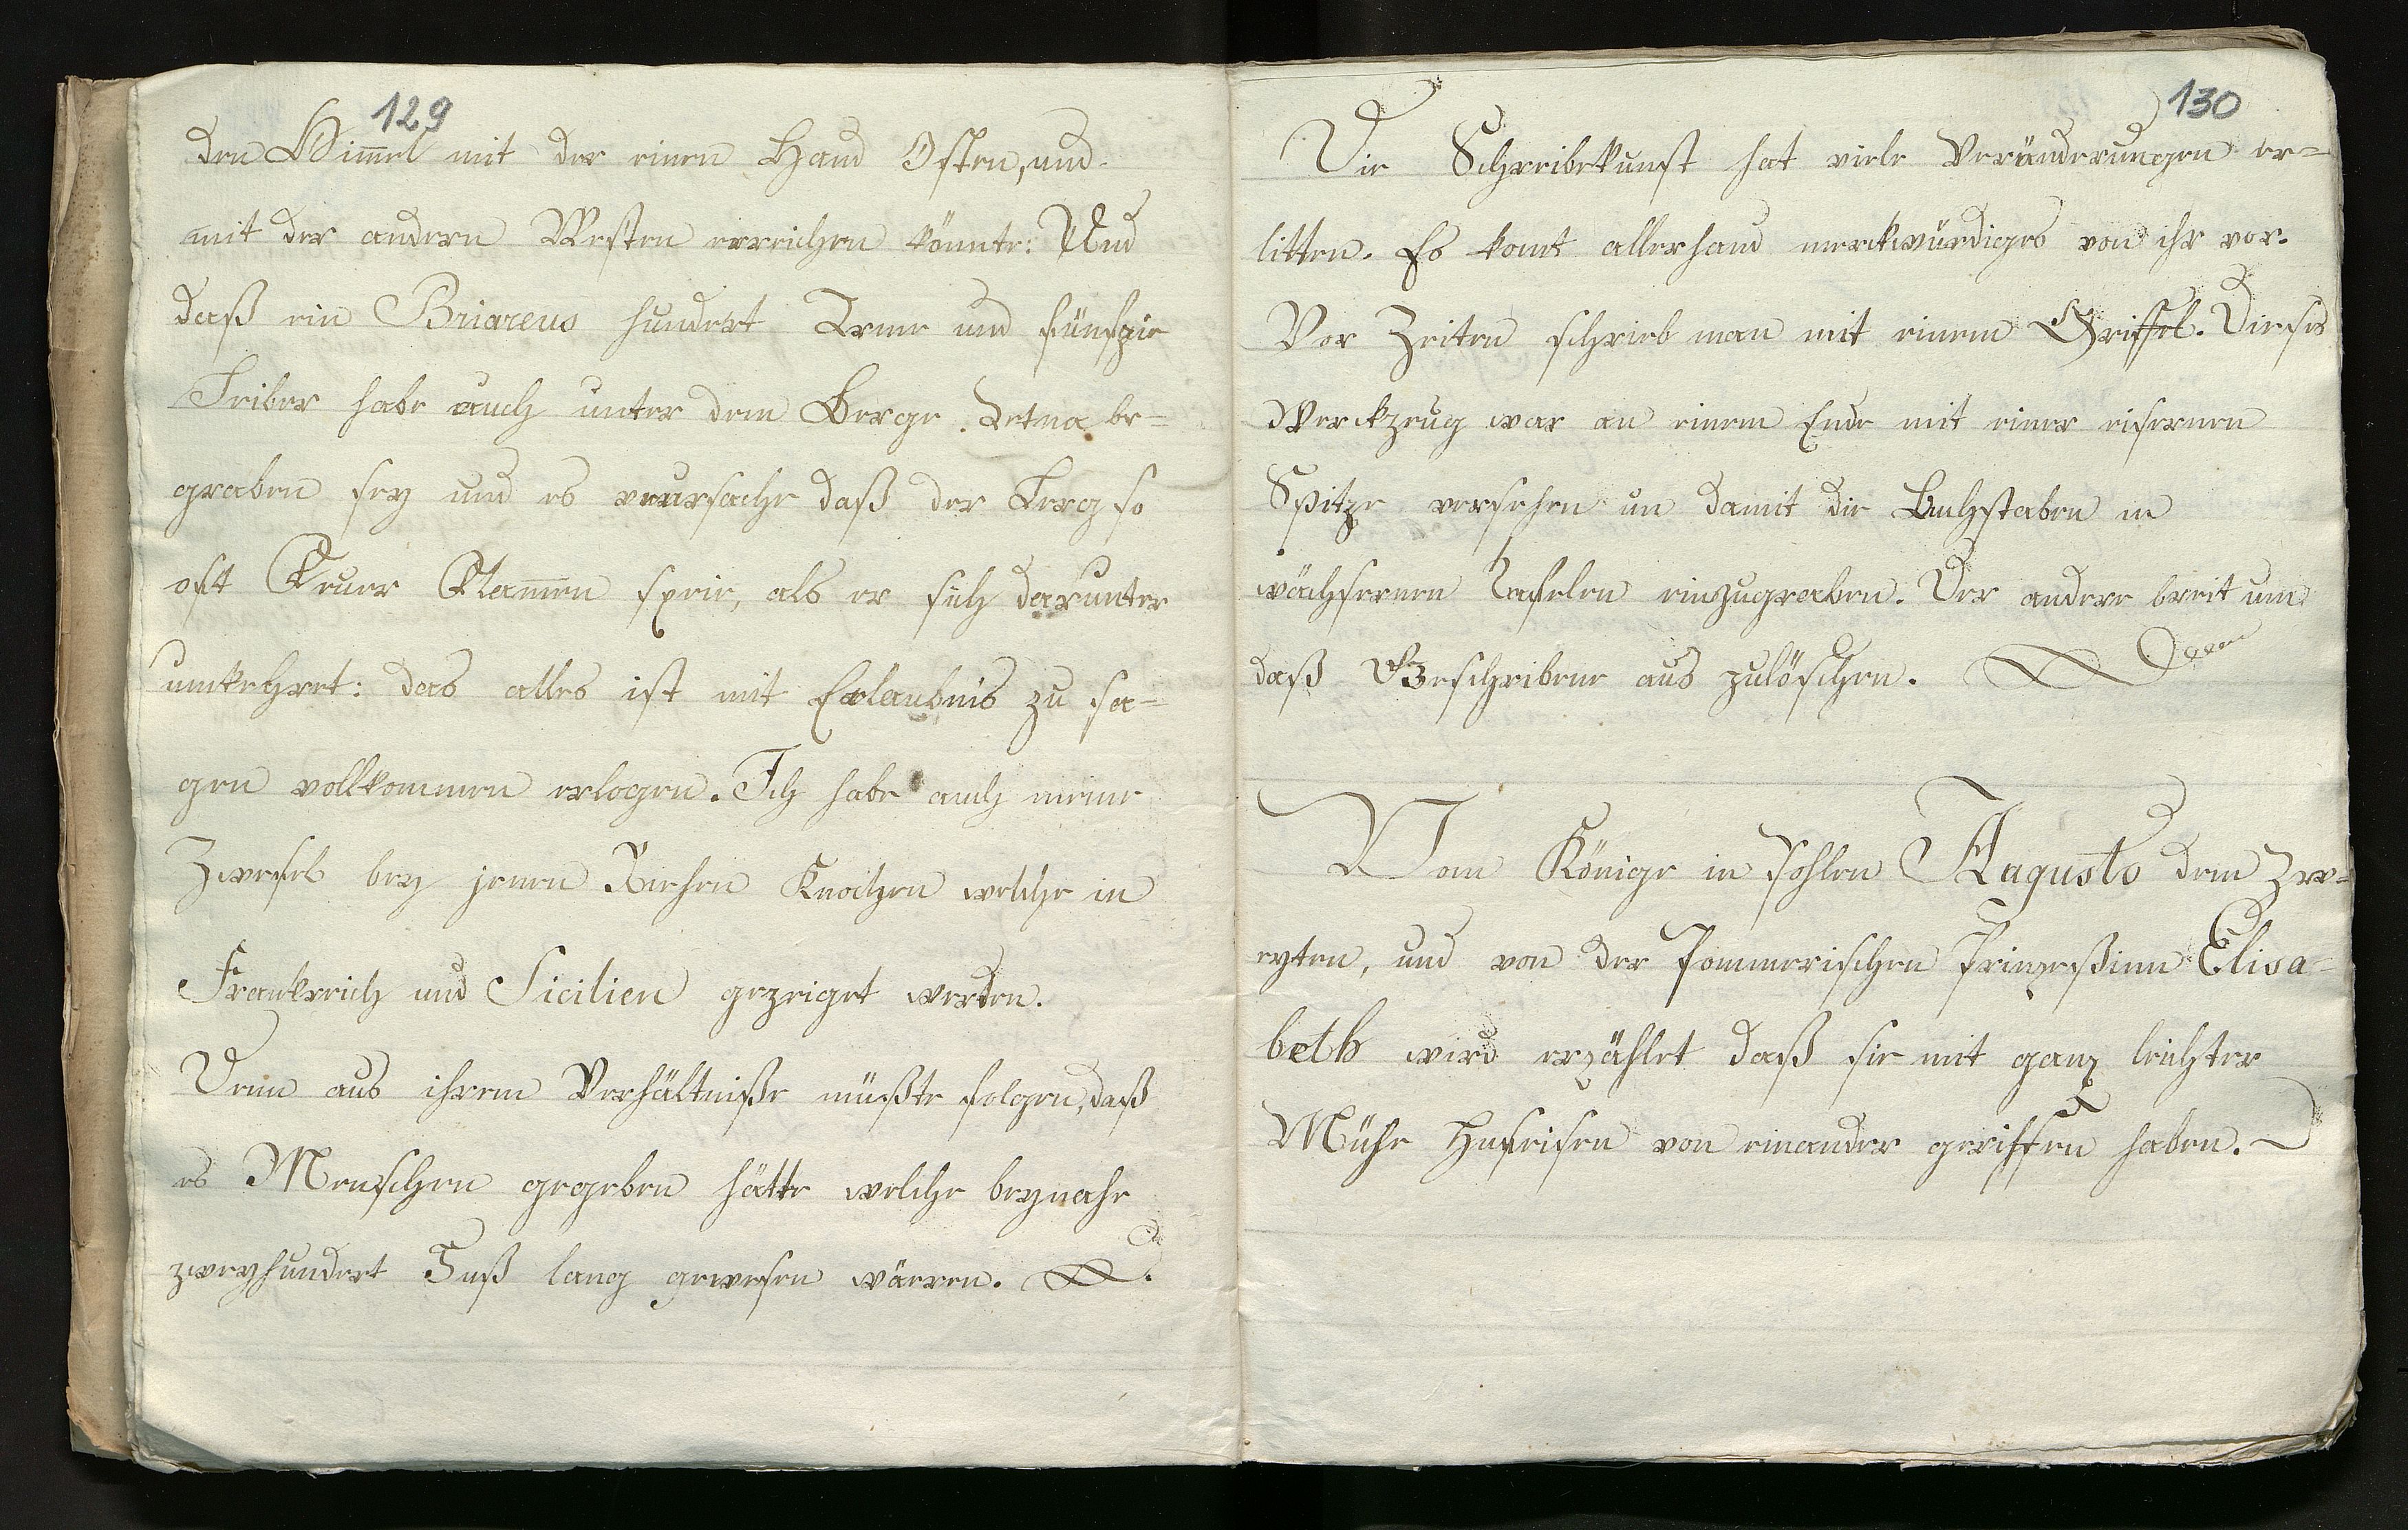 129
den Him̅el mit der einen Hand Osten, und
mit der andern Westen erreichen könnte: Und
daß ein Briareus hundert Arme und fünfzie
Leiber habe auch unter dem Berge Aetna be=
graben sey und es verursache daß der Berg so
oft Feuer Flam̅en speie, als er sich darunter
umkehret: das alles ist mit Erlaubnis zu sa=
gen vollkommen erlogen. Ich habe auch meine
Zweifel bey jenen Riesen Knochen welche in
Frankreich und Sicilien gezeiget werden.
Denn aus ihrem Verhältniße müßte folgen, daß
es Menschen gegeben hätte welche beynahe
zweyhundert Fuß lang gewesen wären.
130
Die Schreibekunst hat viele Veränderungen er=
litten. Es komt allerhand merckwürdiges von ihr vor.
Vor Zeiten schrieb man mit einem Griffel. Dieses
Werckzeug war an einem Ende mit einer eisernen
Spitze versehen um damit die Buchstaben in
wächsernen Tafelen einzugraben. Der andere breit um
daß Geschribene aus zulöschen.
Vom Könige in Pohlen Augusto dem Zwe=
eyten, und von der Pommerischen Prinzeßinn Elisa=
beth wird erzählet daß sie mit ganz leichter
Mühe Hufeisen von einander gerissen haben.